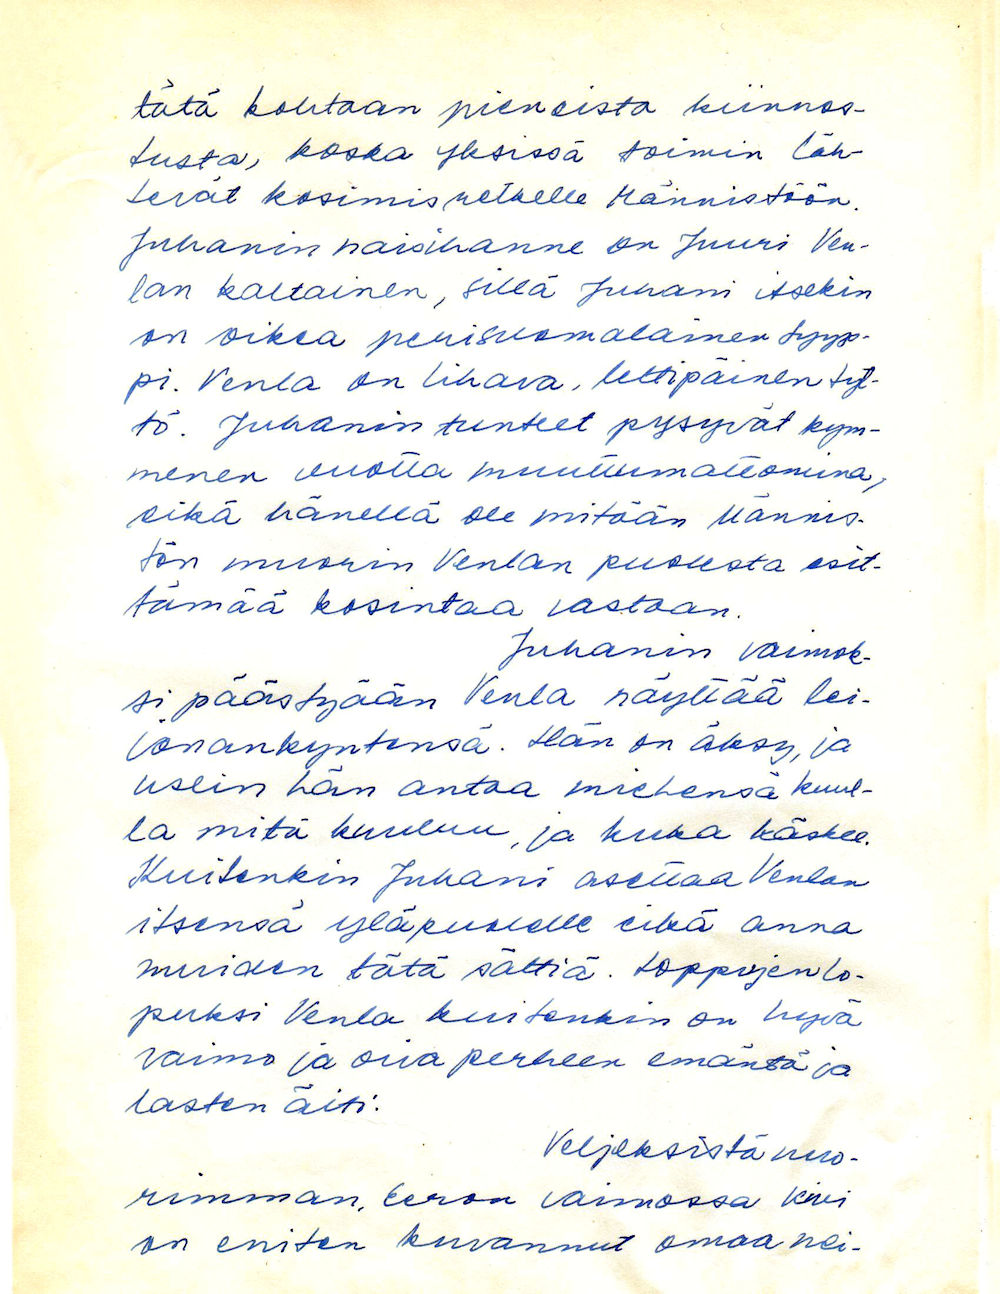 tätä kohtaan pienoista kiinnos-
tusta, koska yksissä toimin läh-
tevät kosimisretkelle Männistöön.
Juhanin naisihanne on juuri Ven-
lan kaltainen, sillä Juhani itsekin
on oikea perisuomalainen tyyp-
pi. Venla on lihava, lettipäinen tyt-
tö. Juhanin tunteet pysyvät kym-
menen vuotta muuttumattomina,
eikä hänellä ole mitään Männis-
tön muorin Venlan puolesta esit-
tämää kosintaa vastaan.
Juhanin vaimok-
si päästyään Venla näyttää lei-
jonankyntensä. Hän on äksy, ja
usein hän antaa miehensä kuul-
la mitä kuuluu, ja kuka käskee.
Kuitenkin Juhani asettaa Venlan
itsensä yläpuolelle eikä anna
muiden tätä sättiä. Loppujen lo-
puksi Venla kuitenkin on hyvä
vaimo ja oiva perheen emäntä ja
lasten äiti.
Veljeksistä nuo-
rimman, Eeron vaimossa Kivi
on eniten kuvannut omaa nei-